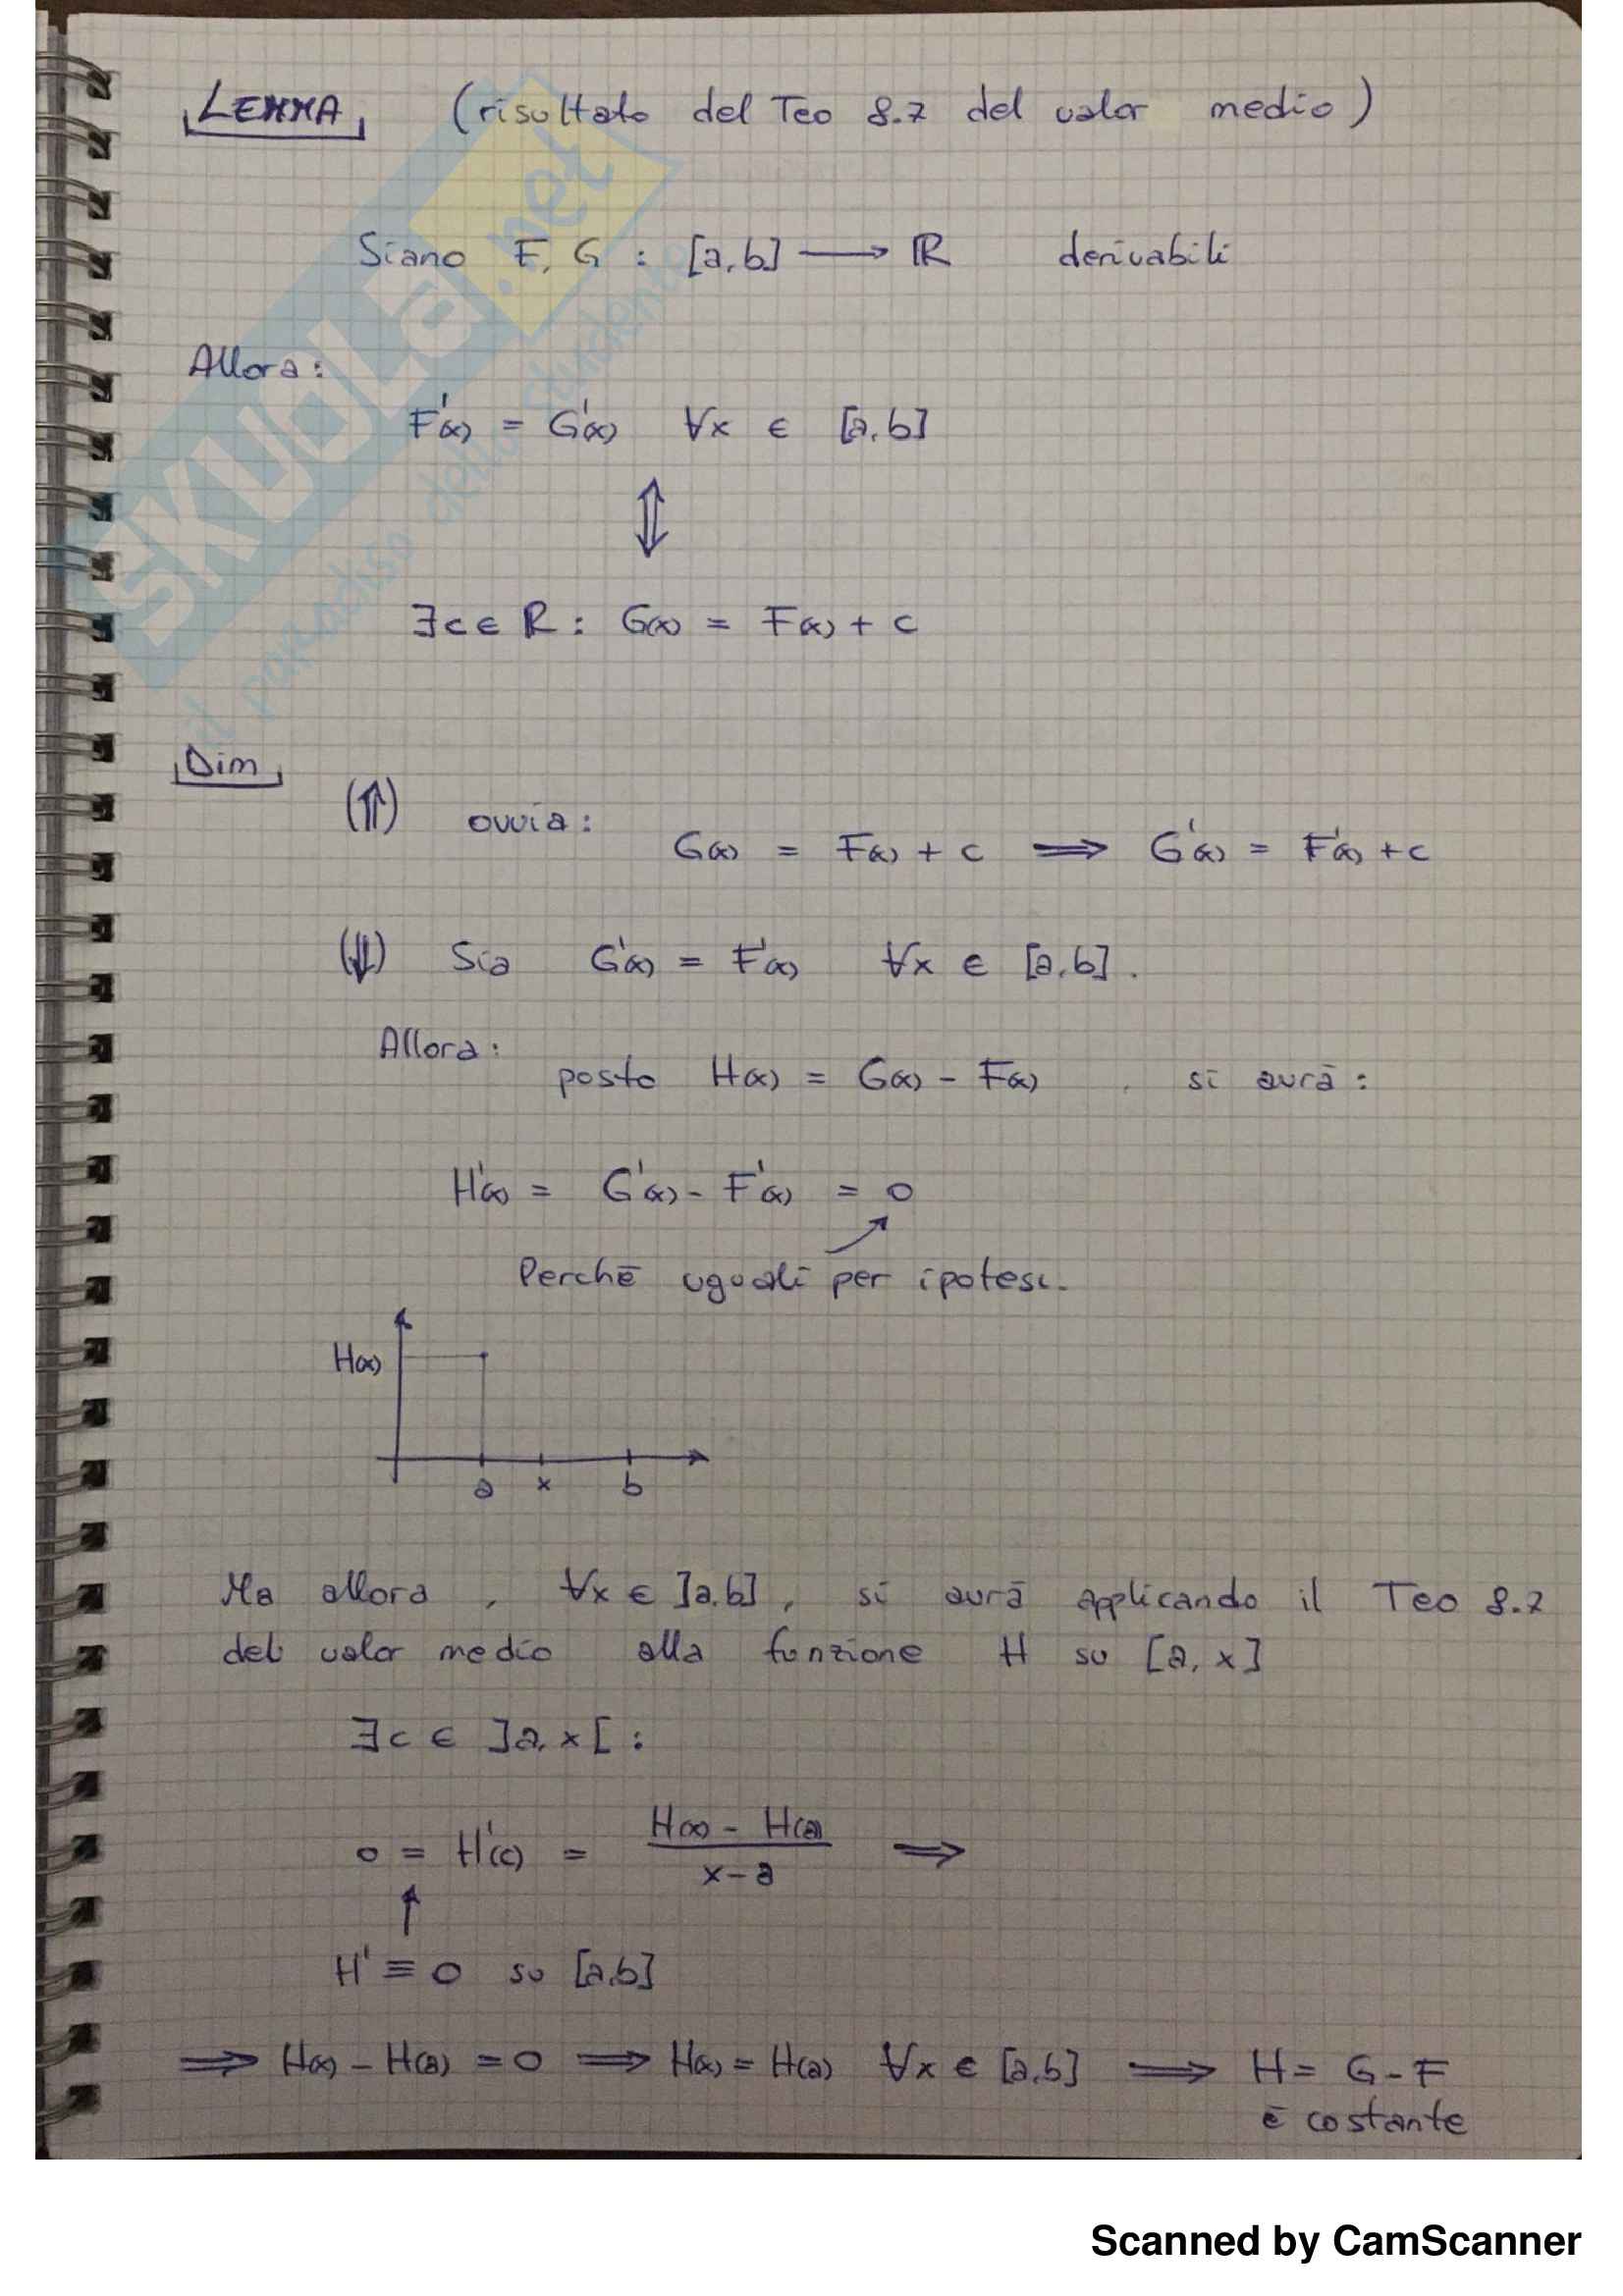 LEMMA (risultato del Teo 8.7 del valor medio)
Siano F, G : [a,b] ⟶ ℝ derivabili
Allora:
F'(x) = G'(x) ∀x ∈ [a,b]
⇕
∃c ∈ ℝ : G(x) = F(x) + c
Dim
(⇑) ovvia:
G(x) = F(x) + c ⟹ G'(x) = F'(x) + c
(⇓) Sia G'(x) = F'(x) ∀x ∈ [a,b].
Allora:
posto H(x) = G(x) - F(x) , si avrà :
H'(x) = G'(x) - F'(x) = 0
Perchè uguali per ipotesi.
H(x)
a x b
Ma allora , ∀x ∈ ]a,b] , si avrà applicando il Teo 8.7
del valor medio alla funzione H su [a, x]
∃c ∈ ]a, x[ :
0 = H'(c) = \frac{H(x) - H(a)}{x - a} ⟹
↑
H' ≡ 0 su [a,b]
⟹ H(x) - H(a) = 0 ⟹ H(x) = H(a) ∀x ∈ [a,b] ⟹ H = G - F
è costante
SKUOLA.net
il paradiso dello studente
Scanned by CamScanner